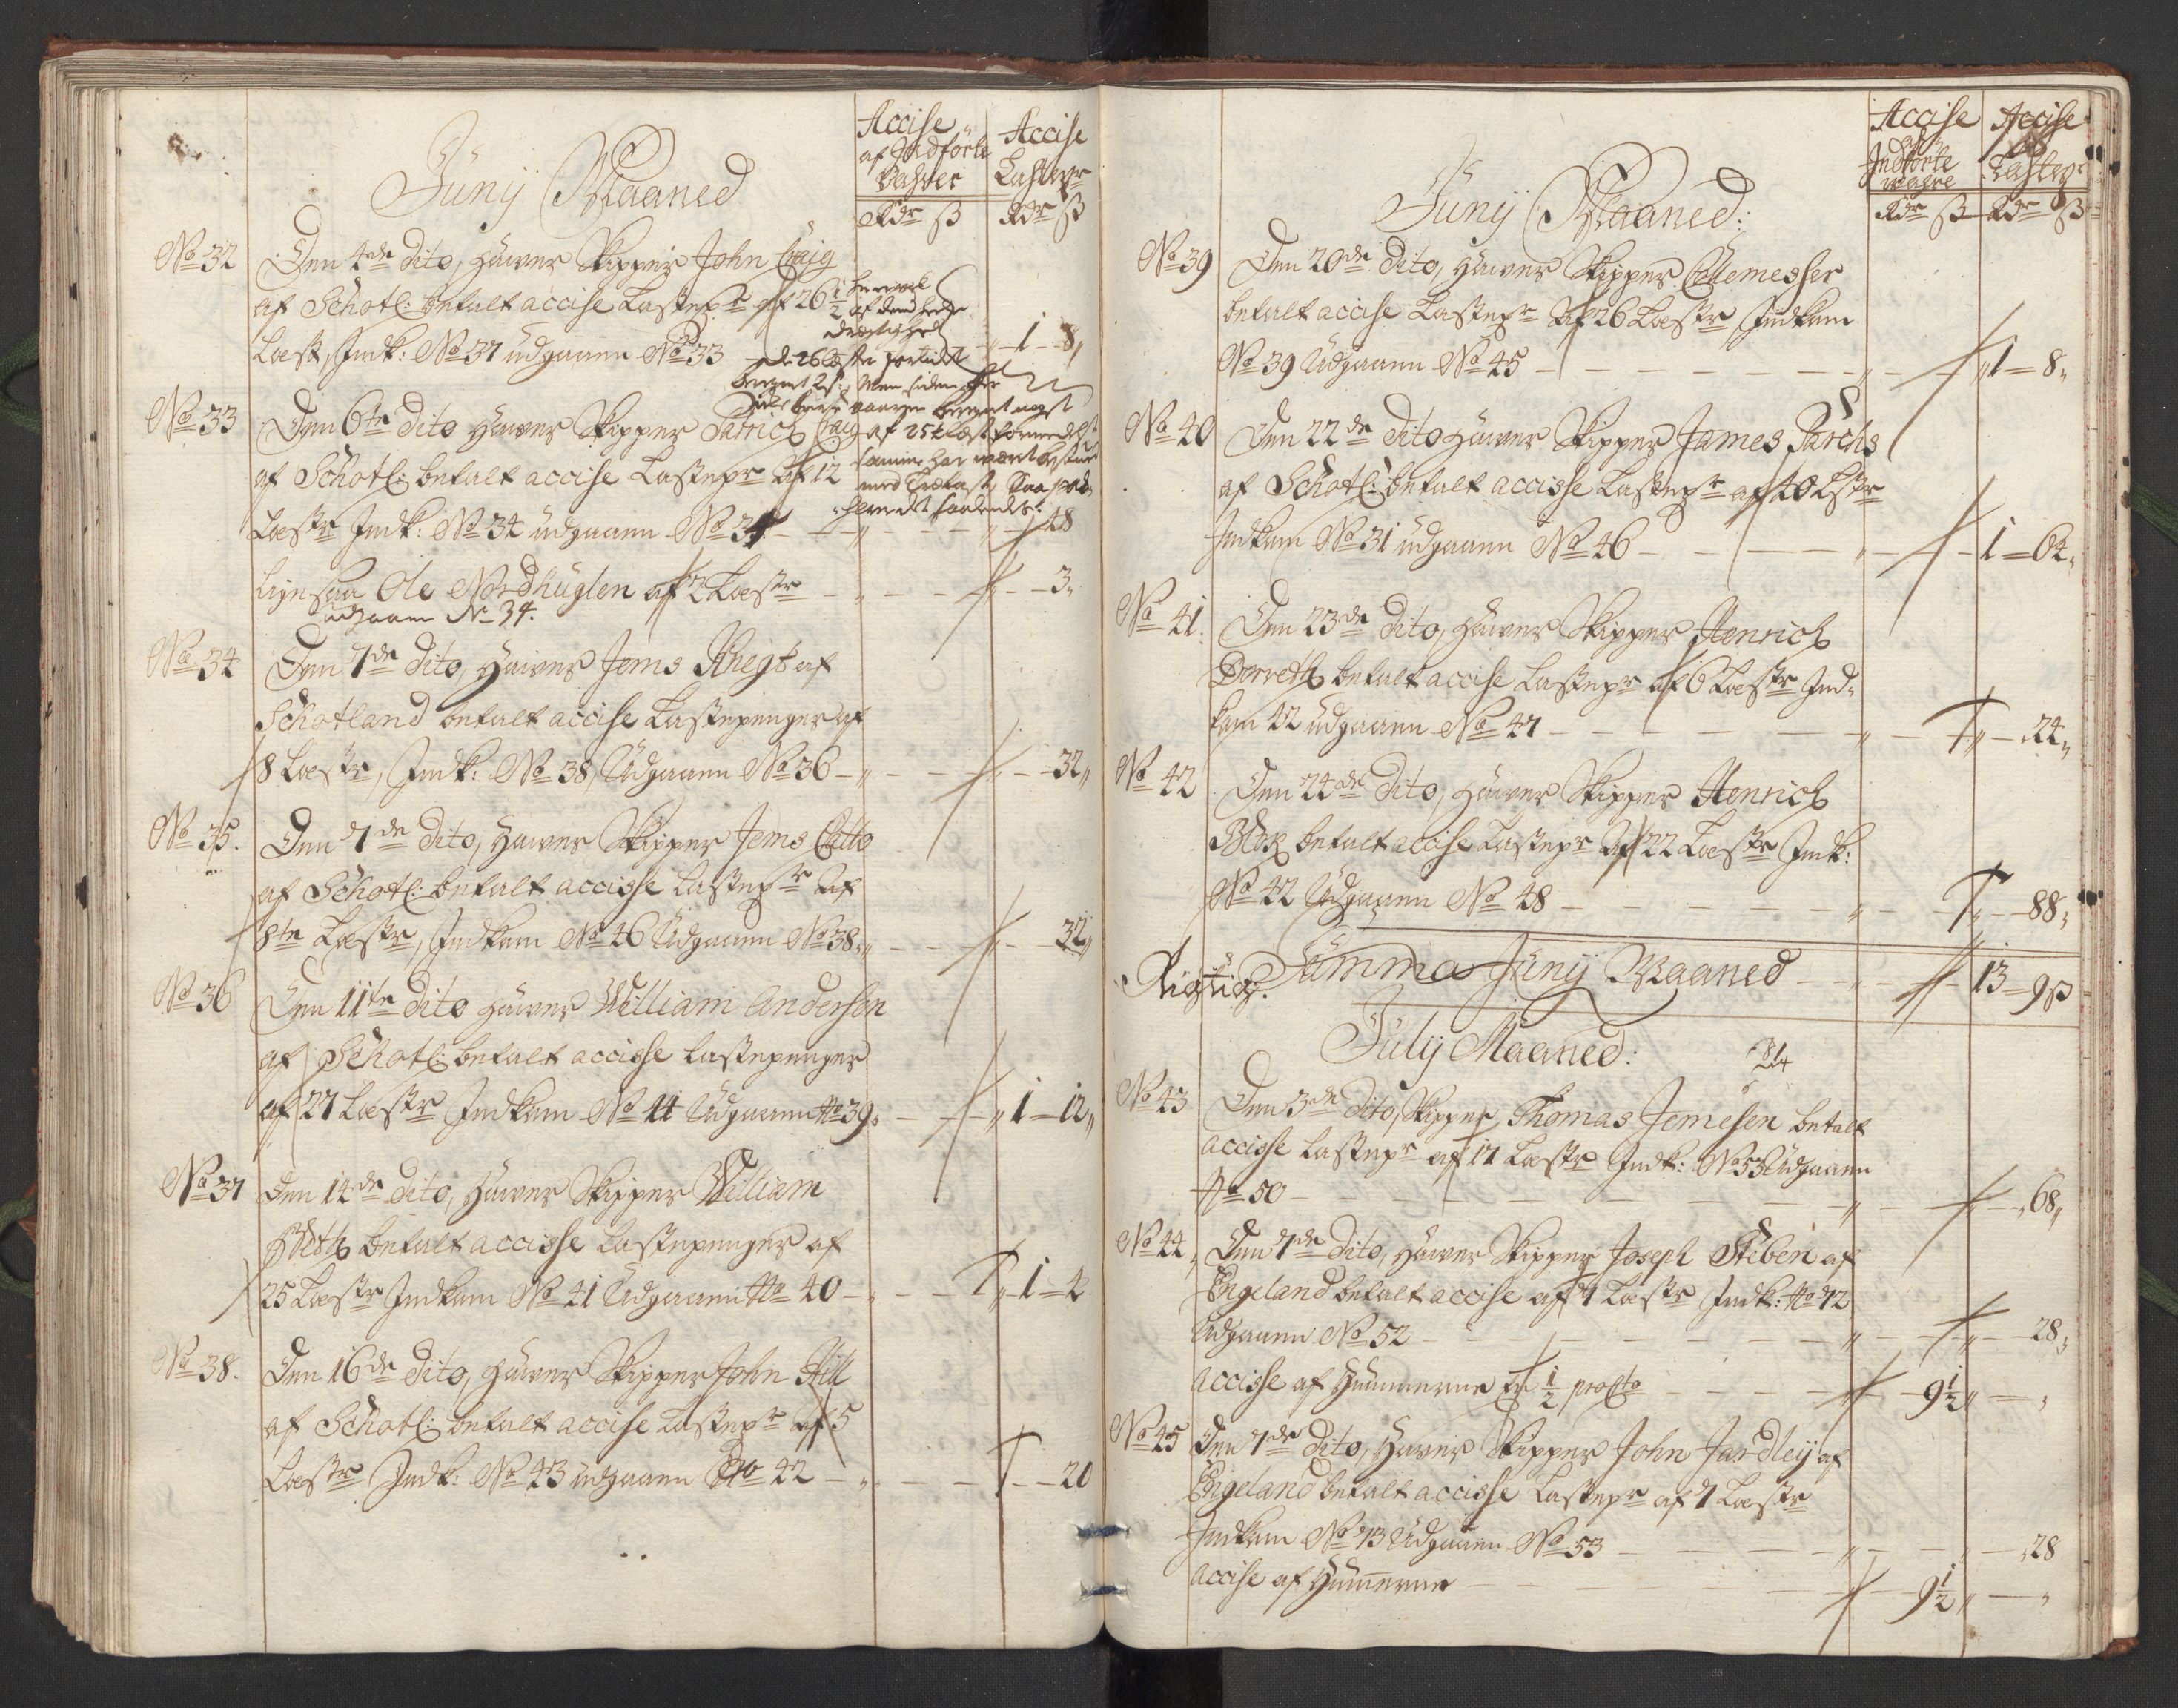 Accise
af Indförte
Vahrer
Accise
Lastepr
Junij Maaned
Rdr ß Rdr ß
No 32 Den 4de dito, Haver Skipper John Craig
af Schotl: betalt accise Lastepr af 26 1/2
Læst, Indk: No 37 udgaaen No 33 1 - 8
No 33 Den 6te dito Haver Skipper Patrich Craig
af Schotl: betalt accise Lastepr af 12
Læstr Indk: No 34 udgaaen No 34 - 48
ligesaa Ole Nordhuglen af 2 Læstr - 3
udgaaen No 34.
No 34 Den 7de dito, Haver Jems Knegt af
Schotland betalt accise Lastepenger af
8 Læstr, Indk: No 38, Udgaaen No 36 - 32
No 35. Den 7de dito, Haver Skipper Jems Catto
af Schotl: betalt accisse Lastepr af
8te Læstr, Indkam No 46 Udgaaen No 38 - 32
No 36 Den 11te dito Haver William Andersen
af Schotl: betalt accisse Lastepenger
af 27 Læstr Indkam No 44 Udgaaen No 39 1 - 12
No 37 Den 14de dito, Haver Skipper William
betalt accisse Lastepenger af
25 Læstr Indkam No 41 Udgaaen No 40 - 1 - 4
No 38. Den 16de dito, Haver Skipper John Hill
af Schotl: betalt accise Lastepr af 5
Læstr Indk: No 43 udgaaen No 42 - 20
Accise
af
Indförte
Waare
Accise
af
Lastepr
Junij Maaned:
Rdr ß Rdr ß
No 39 Den 20de dito, Haver Skipper
betalt accise Lastepr af 26 Læstr, Indkam
No 39 Udgaaen No 45 - 1 - 8
No 40 Den 22de dito Haver Skipper James Parchs
af Schotl: betalt accisse Lastepr af 40 Lstr
Indkam No 31 udgaaen No 46 - 1 - 64
No 41. Den 23de dito, Haver Skipper Henrich
Dorreth betalt accise Lastepr af 6 Læstr Ind-
kam 42 udgaaen No 47 - 24
No 42 Den 24de dito, Haver Skipper Henrich
Blok betalt accise Lastepr af 22 Læstr Indk:
No 42 Udgaaen No 48 - 88
Rigtig. Summa Junij Maaned - 13 - 9 ß
Julij Maaned:
No 43 Den 3de dito, Skipper Thomas Jemesen betalt
accisse Lastepr af 17 Læstr Indk: No 53 Udgaaen
No 50 - 68
No 44 Den 7de dito, Haver Skipper Joseph Steben af
Engeland betalt accise af 7 Læstr Indk: No 72
Udgaaen No 52 - 28
accisse af Hummerne 1/2 procto - 9 1/2
No 45 Den 7de dito, Haver Skipper John Jardleij af
Engeland betalt accisse Lastepr af 7 Læstr
Indkam No 73 Udgaaen No 53 - 28
accise af Hummerne - 9 1/2